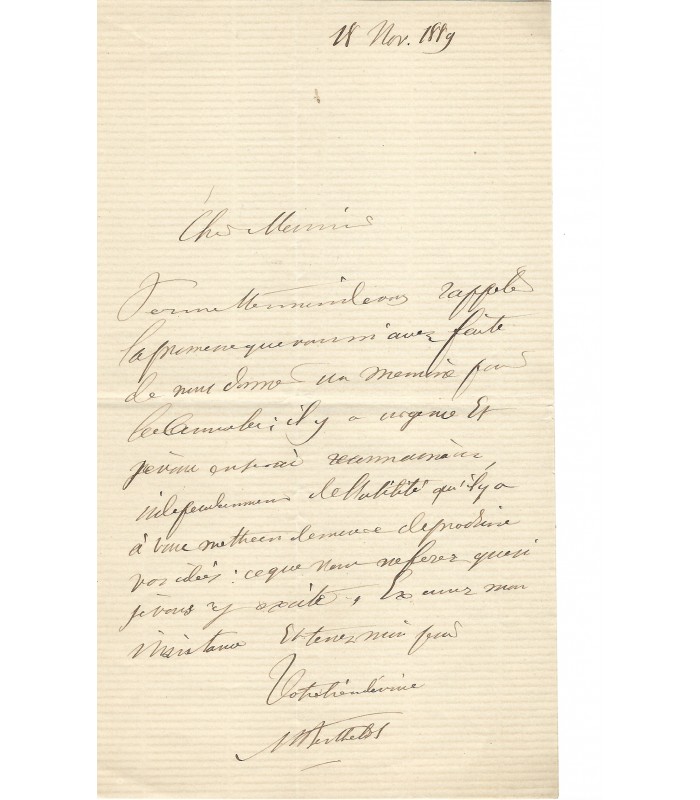 18 Nov. 1889
Cher Meunier
Permettez moi de vous rappeler
la promesse que vous m'avez faite
de nous donner un memoire pour
les Annales; il y a urgence et
je vous en serai reconnaissant,
independamment de l'utilité qu'il y a
à vous mettre en demeure de produire
vos idées: ce que vous ne ferez que si
je vous y excite. Excusez mon
insistance et tenez moi pour
Votre bien dévoué
M Berthelot